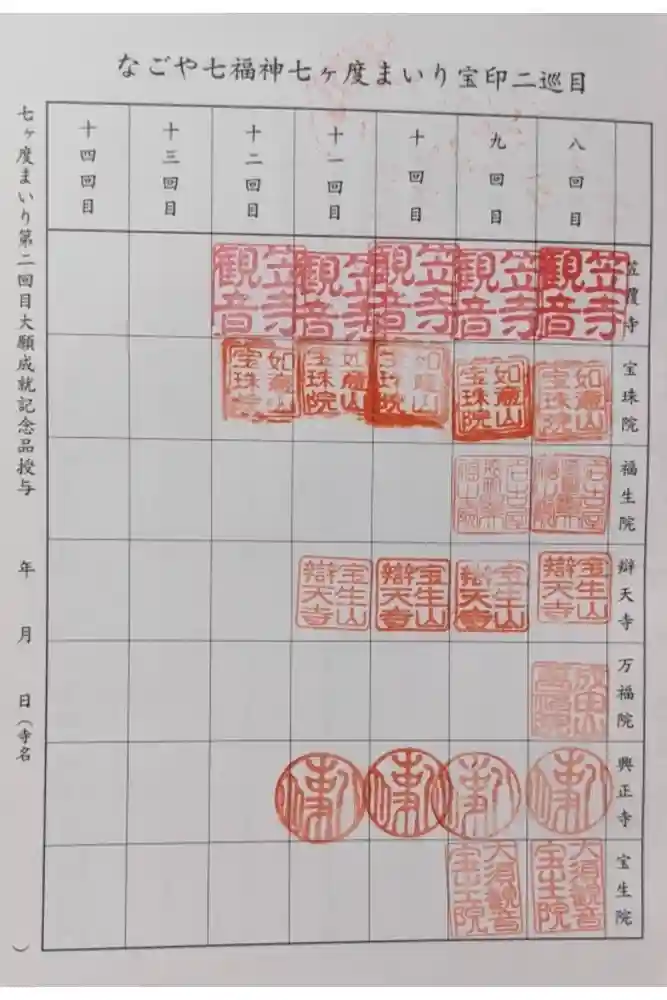 なごや七福神七ヶ度まいり宝印二巡目
八回目
九回目
十回目
十一回目
十二回目
十三回目
十四回目
笠覆寺
笠寺観音
笠寺観音
笠寺観音
笠寺観音
笠寺観音
宝珠院
如意山宝珠院
如意山宝珠院
如意山宝珠院
如意山宝珠院
如意山宝珠院
福生院
辯天寺
宝生山辯天寺
宝生山辯天寺
宝生山辯天寺
宝生山辯天寺
万福院
興正寺
宝生院
大須観音宝生院
大須観音宝生院
七ヶ度まいり第二回目大願成就記念品授与 年 月 日(寺名 )